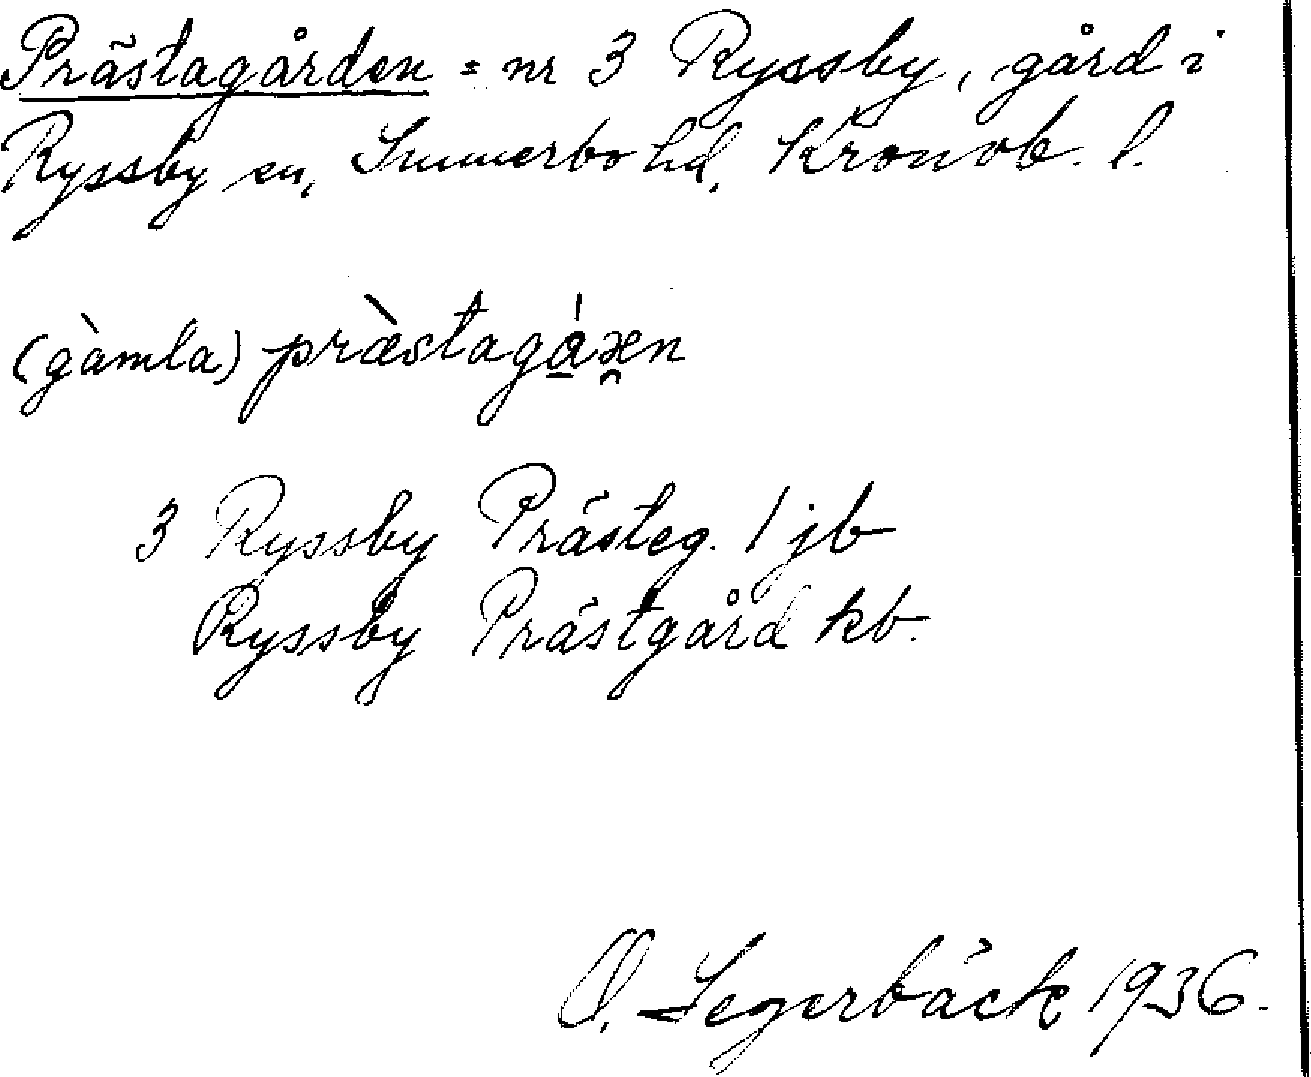 Prästagården = nr 3 Ryssby, gård i
Ryssby sn, Sunnerbo hd, Kronob. l.
(gàmla) præ̀stagá̱æ̯n
3 Ryssby Prästeg. 1 jb
Ryssby Prästgård kb.
O. Segerbäck 1936.